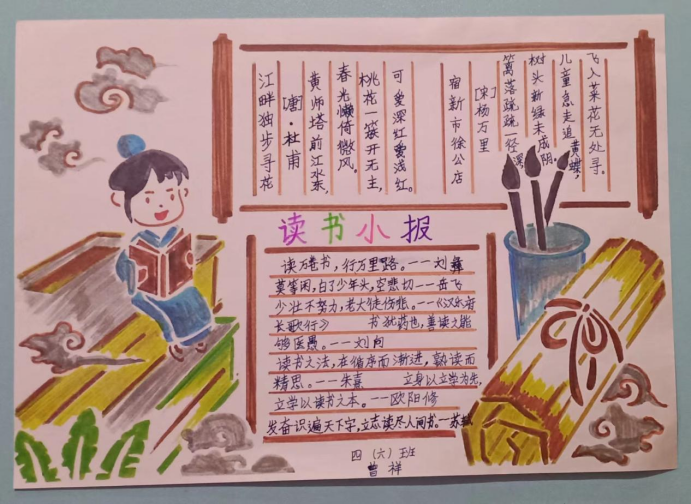 江畔独步寻花
[唐]·杜甫
黄师塔前江水东，
春光懒倚微风。
桃花一簇开无主，
可爱深红爱浅红。
宿新市徐公店
[宋]杨万里
篱落疏疏一径深，
树头新绿未成阴。
儿童急走追黄蝶，
飞入菜花无处寻。
读书小报
读万卷书，行万里路。——刘彝
莫等闲，白了少年头，空悲切——岳飞
少壮不努力，老大徒伤悲。——《汉乐府
长歌行》 书犹药也，善读之能
够医愚。——刘向
读书之法，在循序而渐进，熟读而
精思。——朱熹 立身以立学为先，
立学以读书之本。——欧阳修
发奋识遍天下字，立志读尽人间书。—苏轼
四（六）班
曹祥